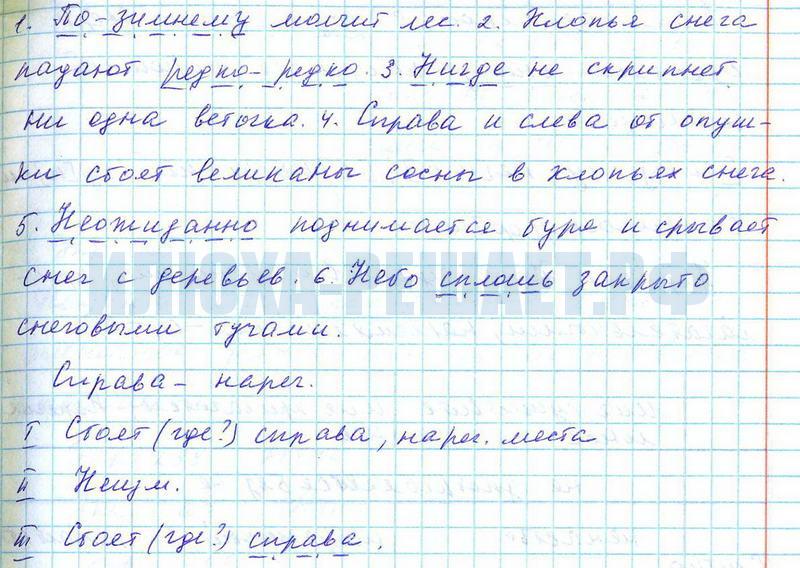 1. По-зимнему молчит лес. 2. Хлопья снега
падают редко-редко. 3. Нигде не скрипнет
ни одна веточка. 4. Справа и слева от опуш-
ки стоят великаны сосны в хлопьях снега.
5. Неожиданно поднимается буря и срывает
снег с деревьев. 6. Небо сплошь закрыто
ИЛЮХА-РЕШАЕТ.РФ
снеговыми тучами.
Справа – нареч.
I Стоят (где?) справа, нареч. места
II Неизм.
III Стоят (где?) справа.